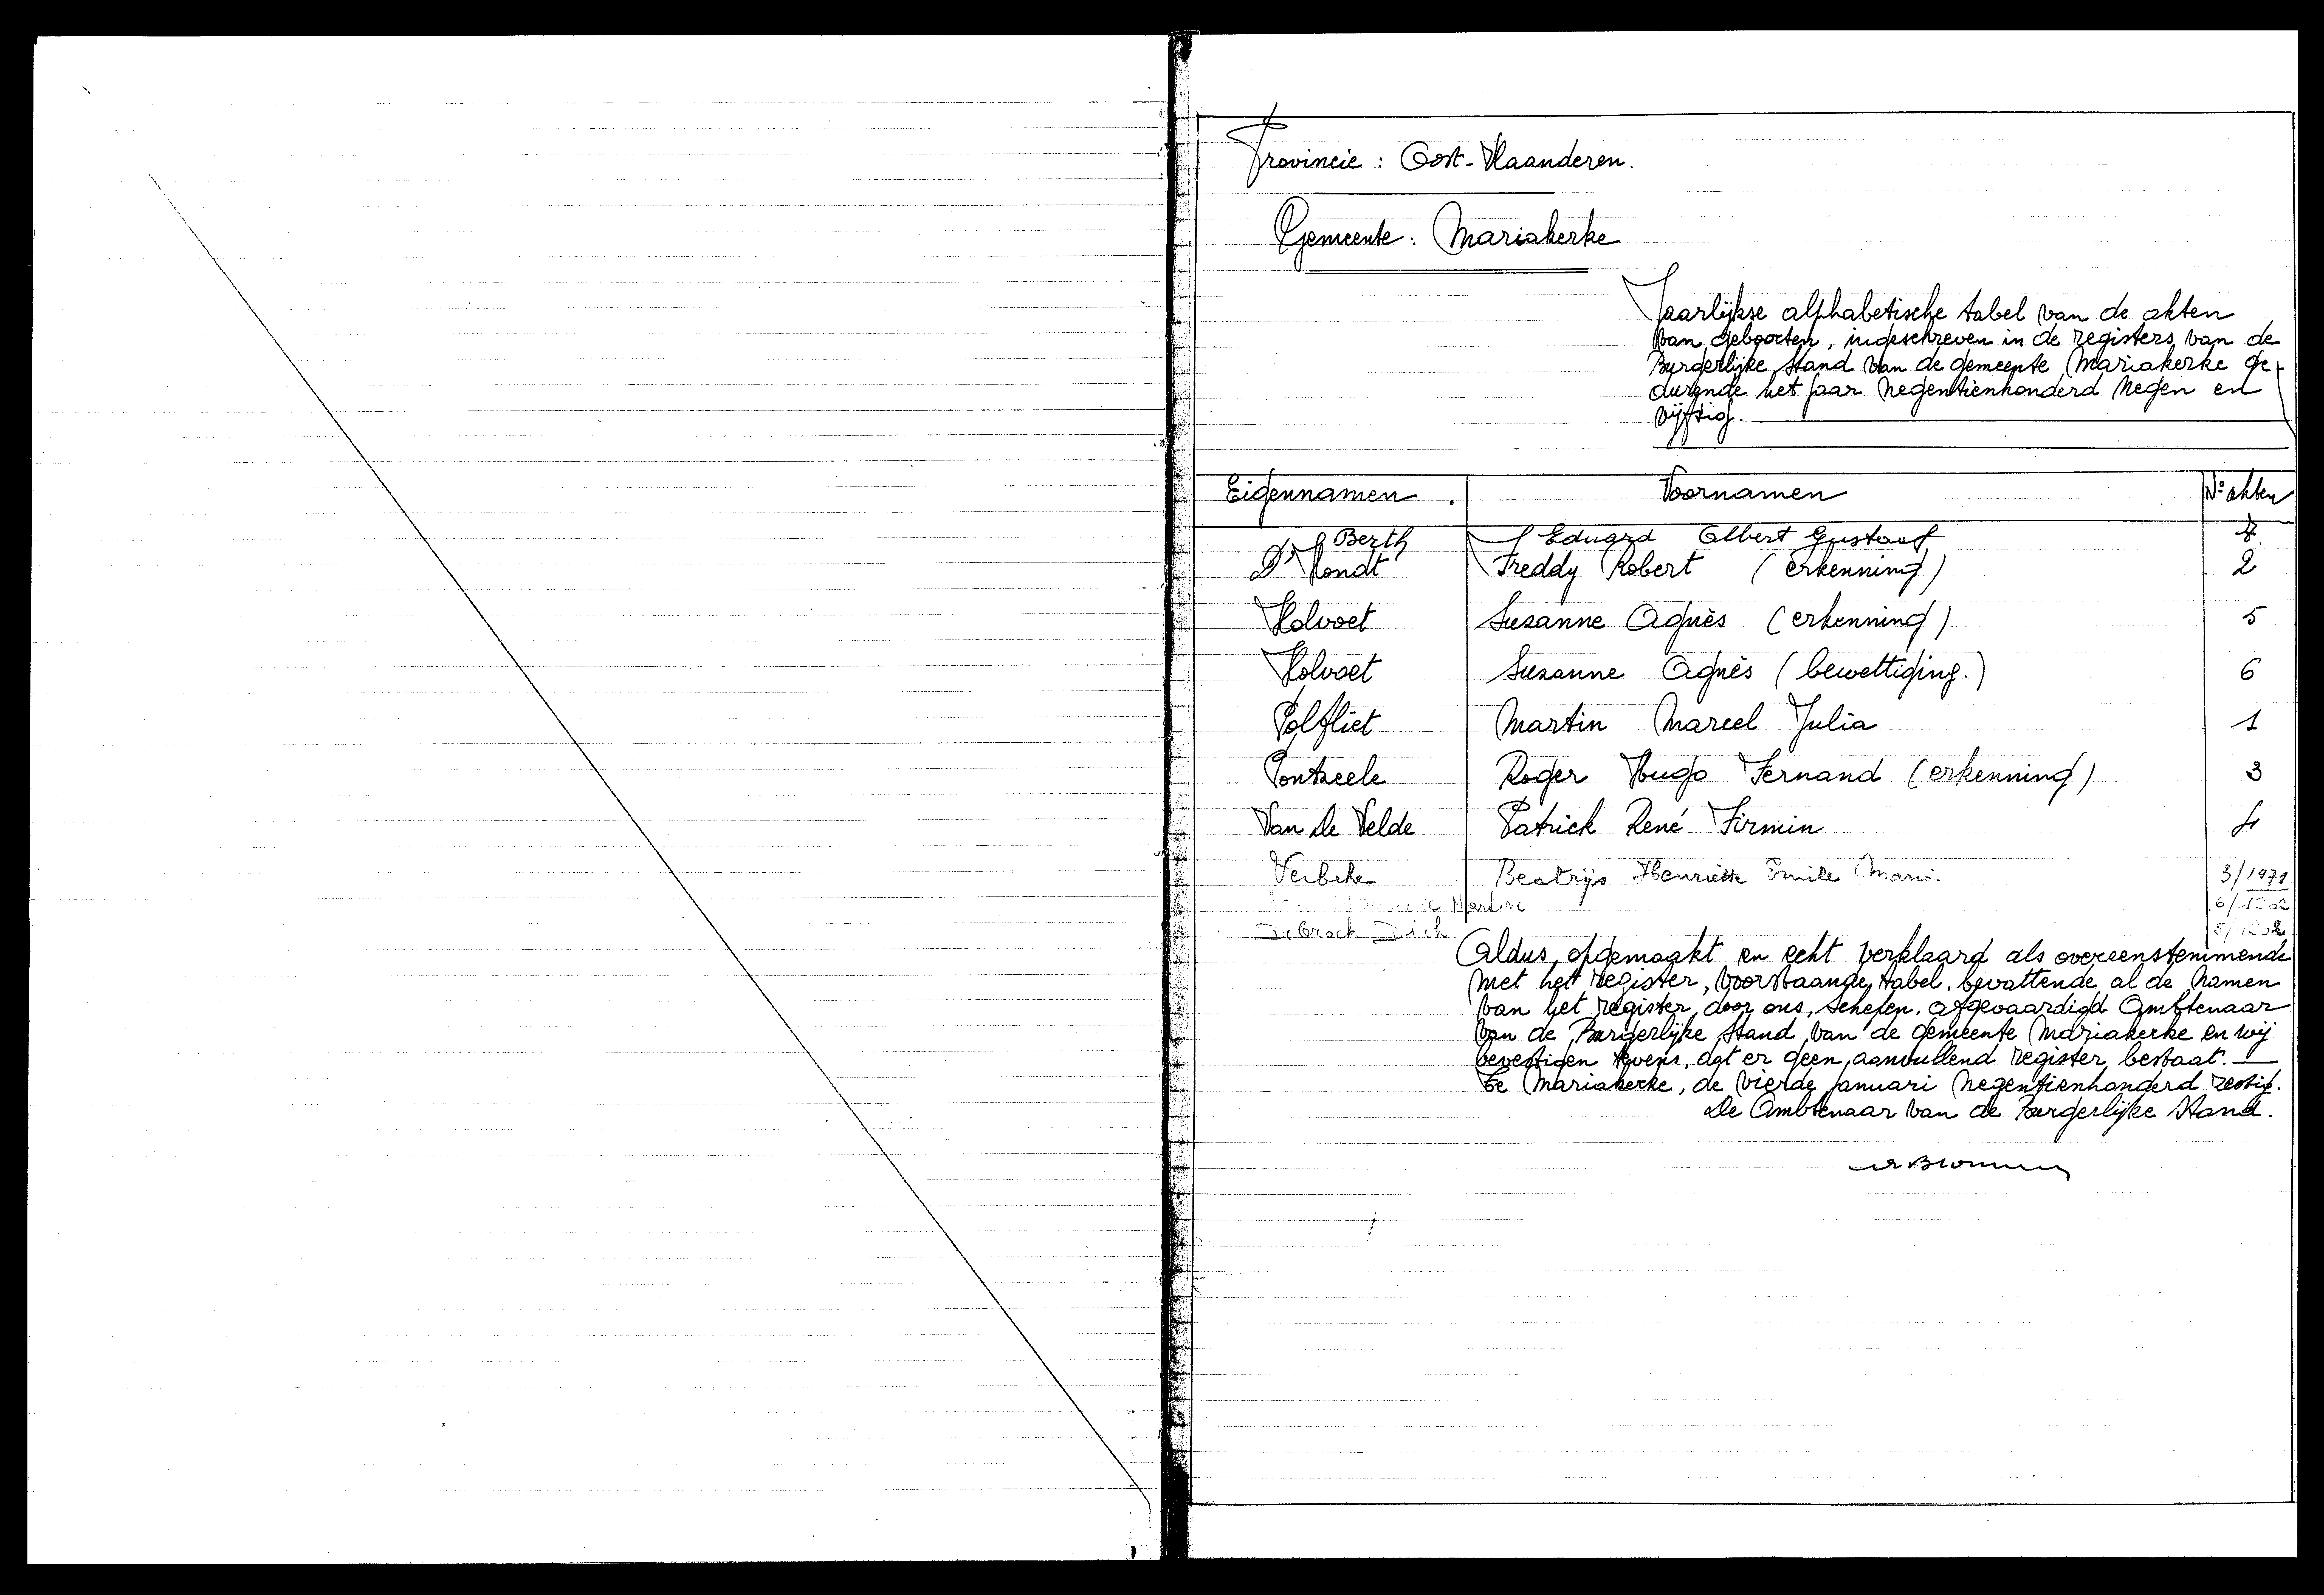 Provincie : Oost-Vlaanderen.
Gemeente : Mariakerke
Jaarlijkse alphabetische tabel van de akten
van geboorten, ingeschreven in de registers van de
Burgerlijke Stand van de gemeente Mariakerke ge-
durende het jaar negentienhonderd negen en
vijftig.
Eigennamen . Voornamen N° akten
Berth Eduard Albert Gustaaf 7.
D'Hondt Freddy Robert (erkenning) 2
Holvoet Suzanne Agnès (erkenning) 5
Holvoet Suzanne Agnès (bewettiging.) 6
Polfliet Martin Marcel Julia 1
Pontzeele Roger Hugo Fernand (erkenning) 3
Van De Velde Patrick René Firmin 4
Verbeke Beatrijs Henriette Emile 3/1971
Martine
Debrock
Aldus opgemaakt en echt verklaard als overeenstemmende
met het register, voorstaande tabel, bevattende al de namen
van het register, door ons, Schepen, afgevaardigd Ambtenaar
van de Burgerlijke Stand van de gemeente Mariakerke en wij
bevestigen tevens, dat er geen aanvullend register bestaat.
Te Mariakerke, de vierde januari negentienhonderd zestig.
De Ambtenaar van de Burgerlijke Stand.